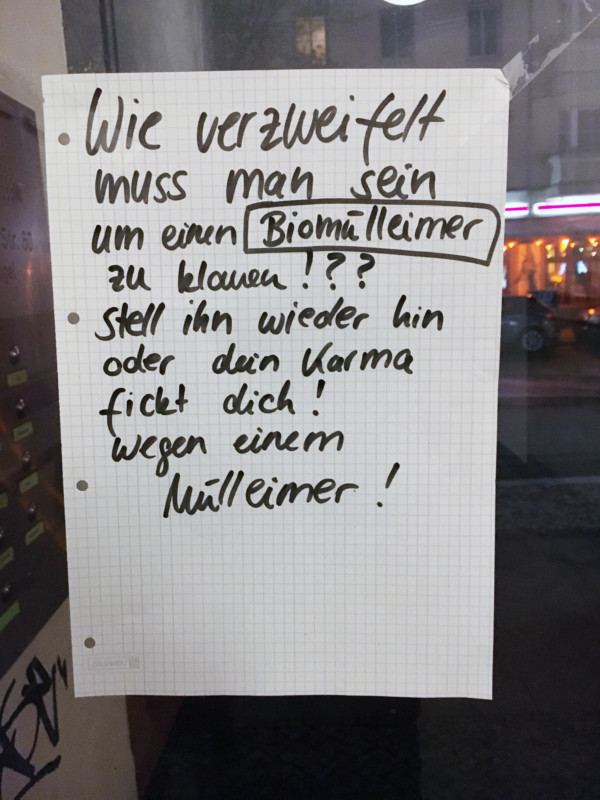 Wie verzweifelt
muss man sein
um einen Biomülleimer
zu klauen!???
stell ihn wieder hin
oder dein Karma
fickt dich!
wegen einem
Mülleimer!